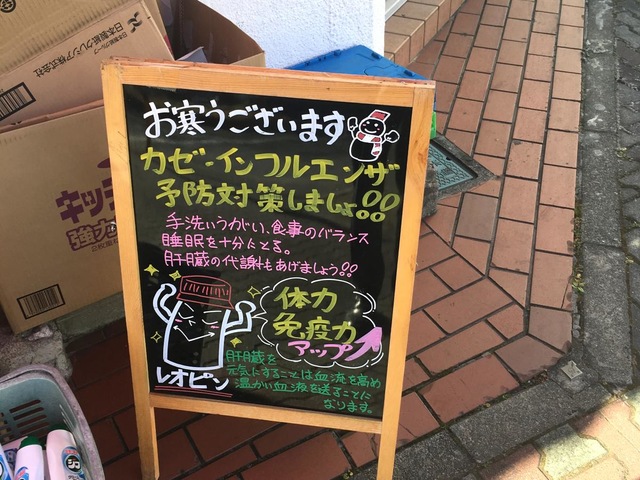 日本製紙クレシア株式会社
お寒うございます
カゼ・インフルエンザ
予防対策しましょ!!
手洗いうがい、食事のバランス
睡眠を十分とる。
肝臓の代謝もあげましょう!!
体力
免疫力
アップ
レオピン
肝臓を
元気にすることは血流を高め
温かい血液を送ることに
なります。
キッチ
強力